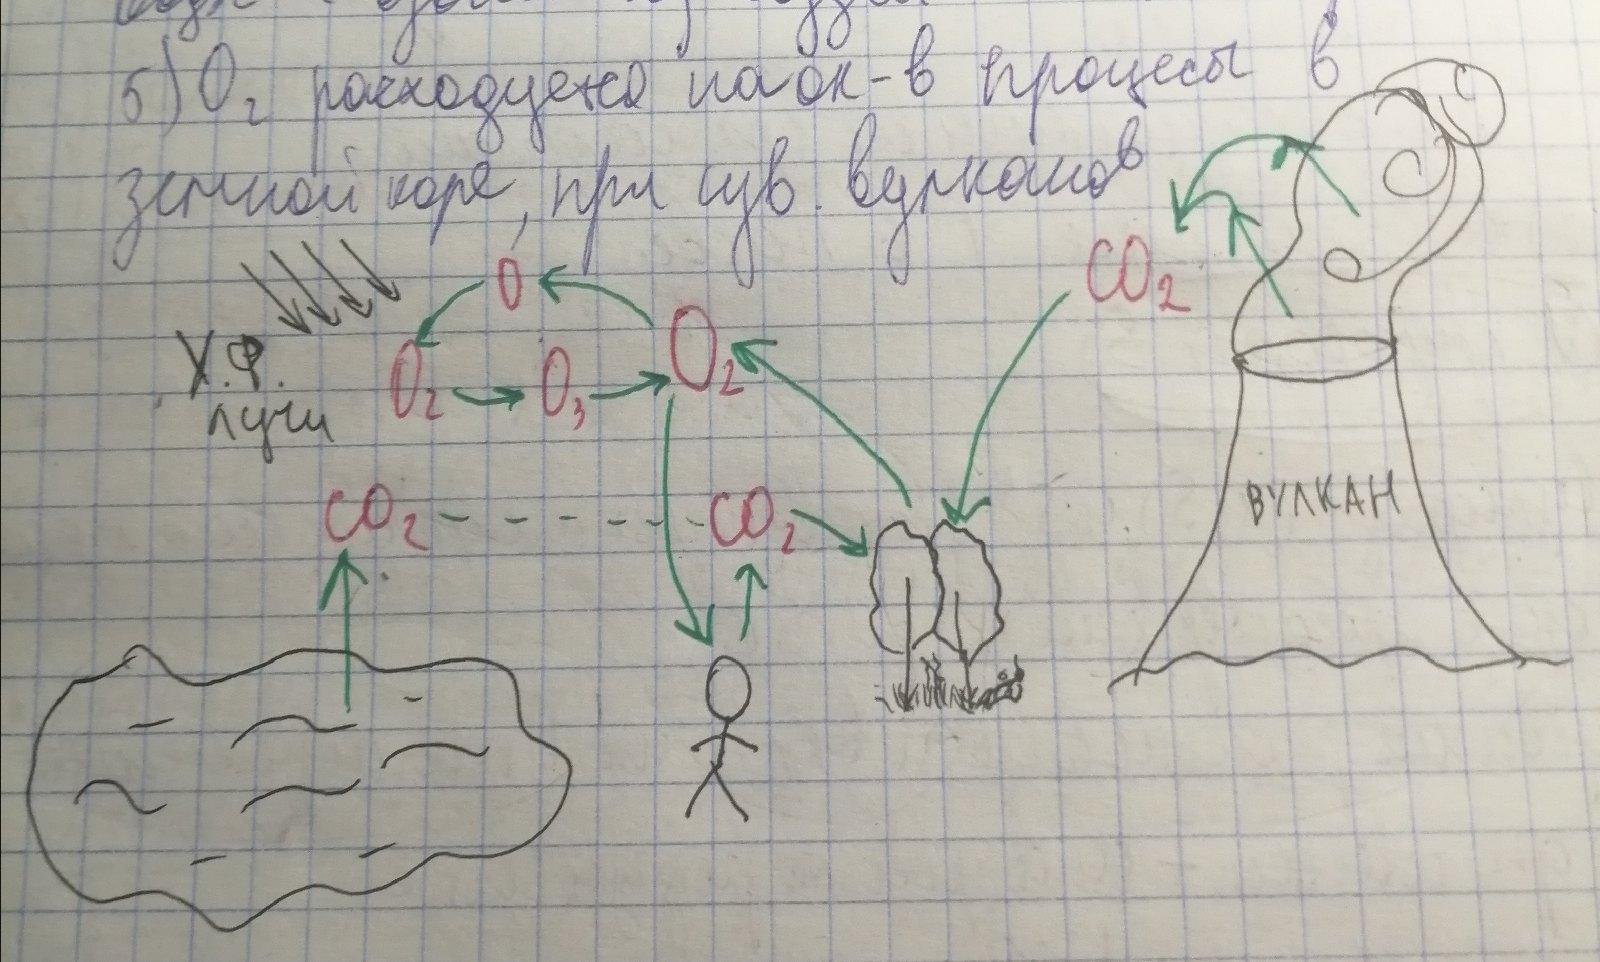 5) O₂ расходуется на ок-в процесы в
земной коре, при изв. вулканов
CO₂
O
O₂
У.Ф.
лучи
O₂ O₃
CO₂ CO₂
ВУЛКАН